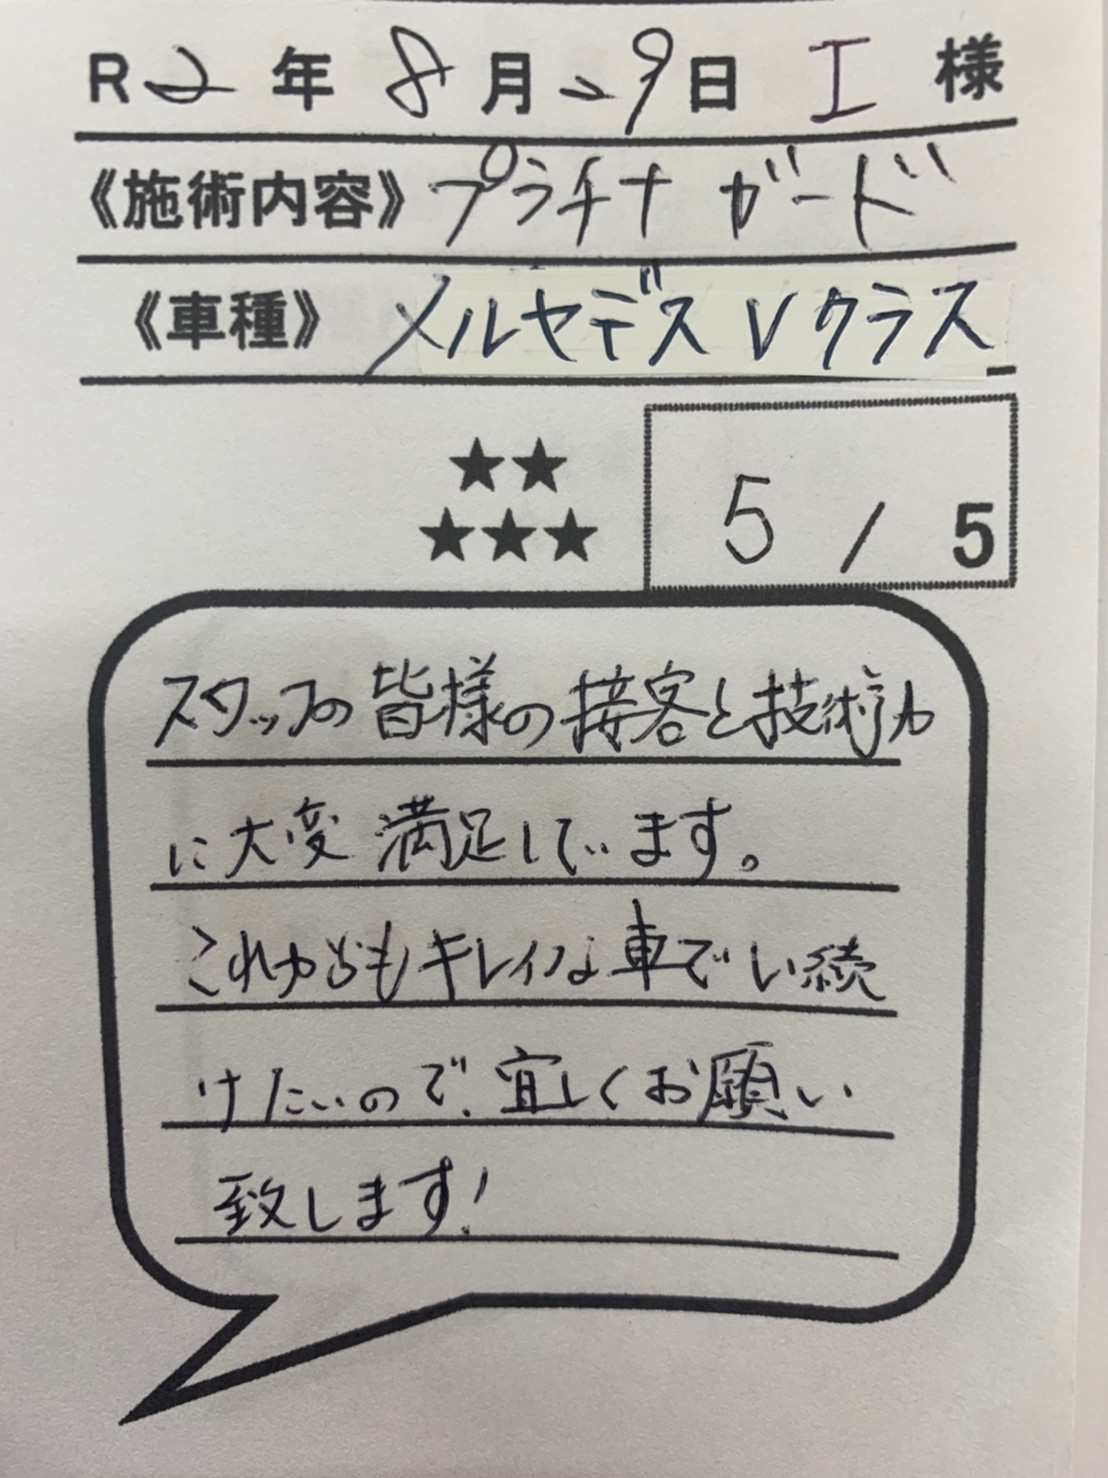 R2年8月29日 I 様
《施術内容》プラチナガード
《車種》メルセデスVクラス
★★
★★★
5/5
スタッフの皆様の接客と技術力
に大変満足しています。
これからもキレイな車でい続
けたいので、宜しくお願い
致します!